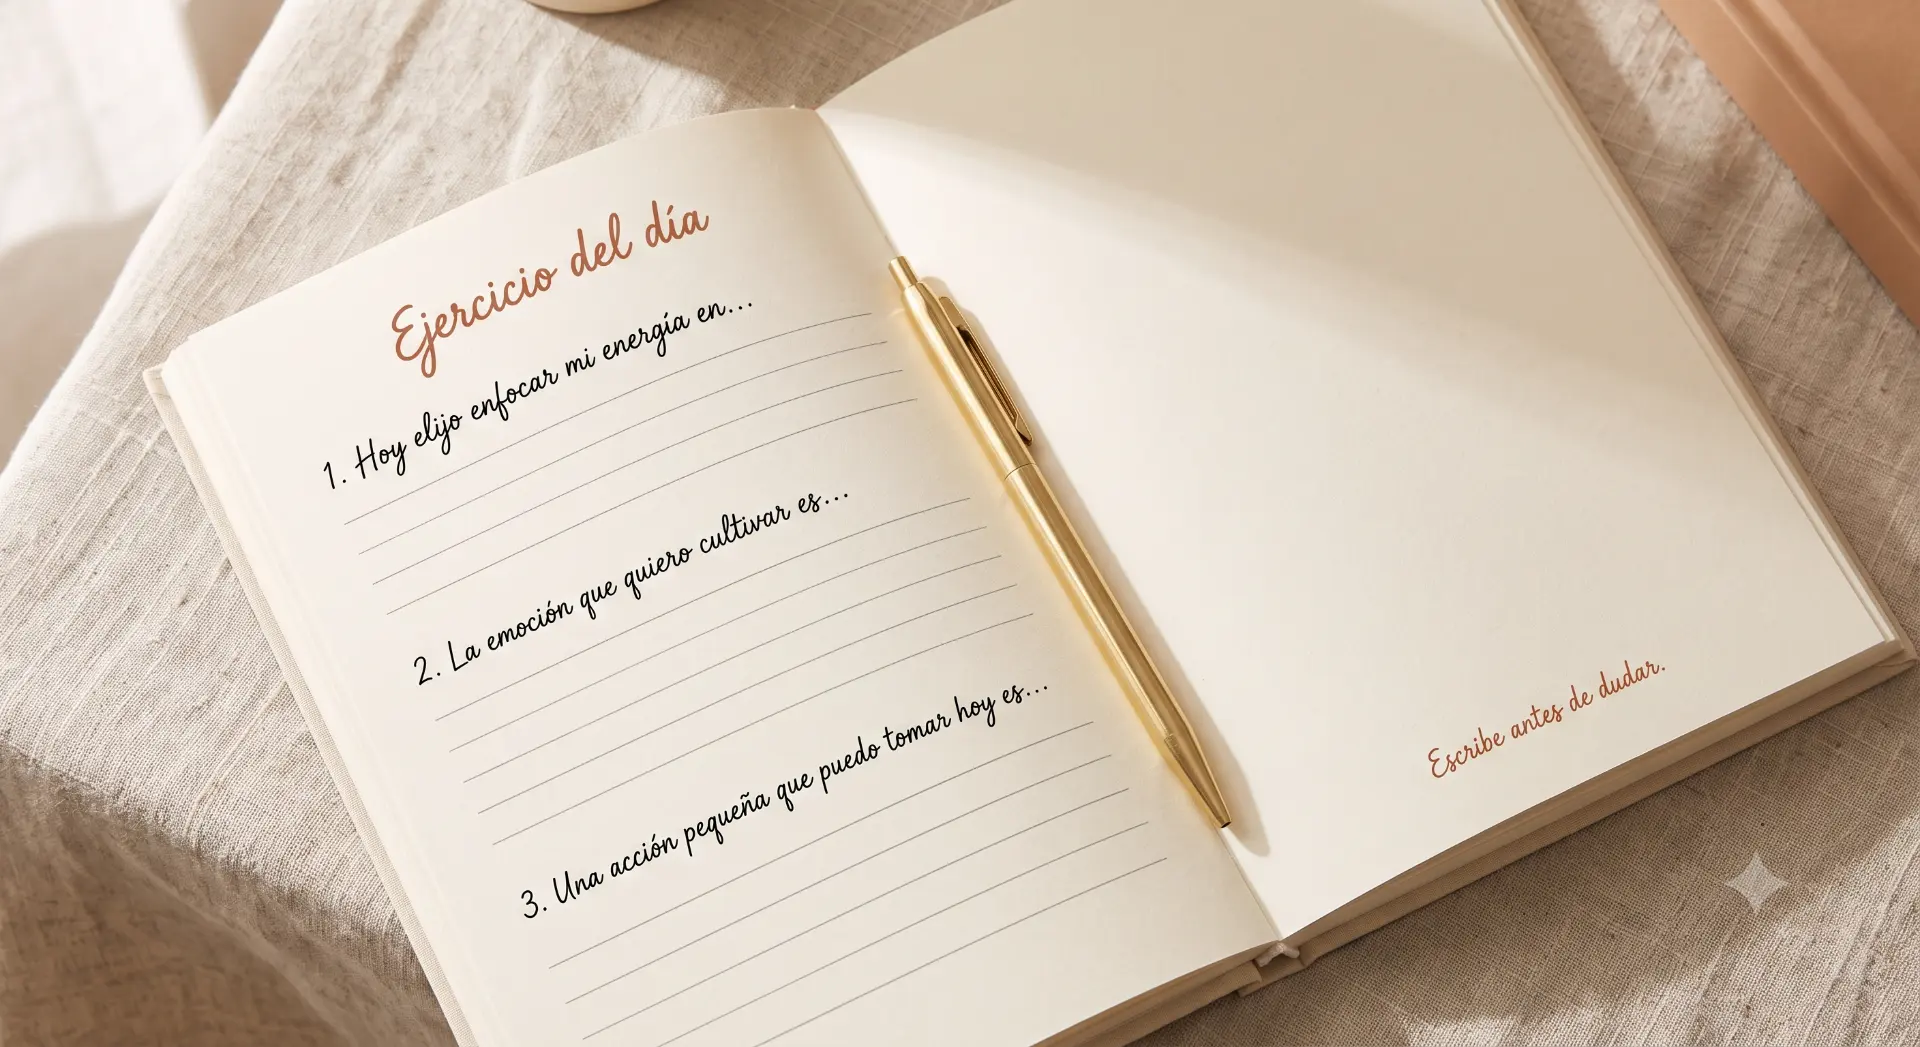 Ejercicio del día
1. Hoy elijo enfocar mi energía en...
2. La emoción que quiero cultivar es...
3. Una acción pequeña que puedo tomar hoy es...
Escribe antes de dudar.